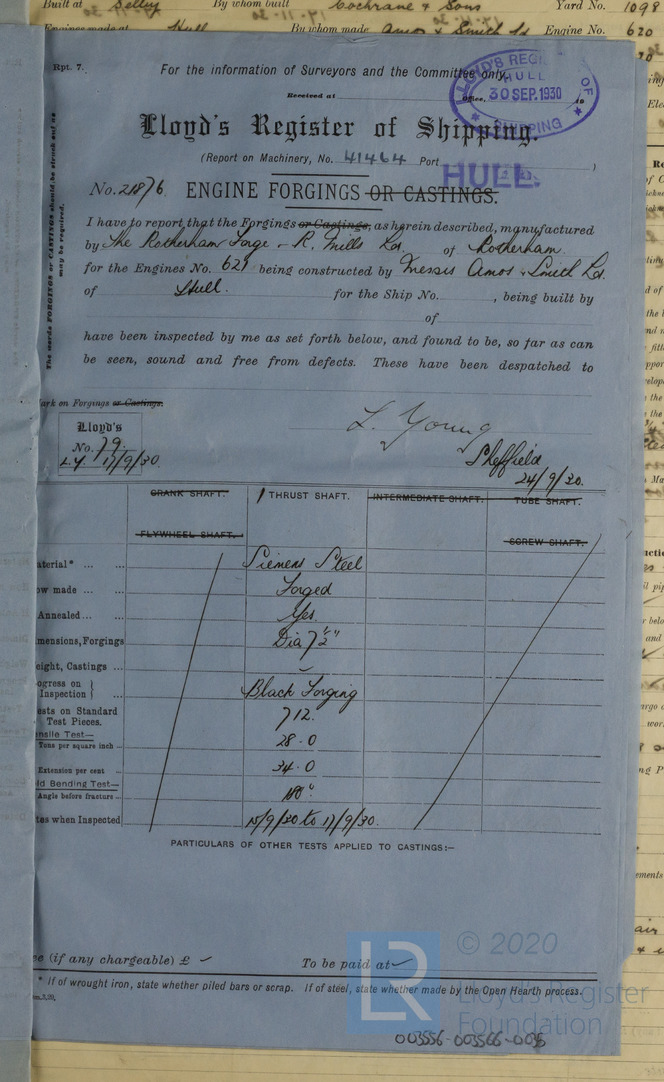 Built at Selby By whom built Cochrane & Sons Yard No. 1098
Engines made at Hull By whom made Amos & Smith Ld Engine No. 620
Rpt. 7.
For the information of Surveyors and the Committee only.
LLOYD'S REG OF
HULL
30 SEP. 1930
SHIPPING
Received at Office, 19
Lloyd's Register of Shipping.
(Report on Machinery, No. 41464 Port HULL. )
No. 21876 ENGINE FORGINGS OR CASTINGS.
The words FORGINGS or CASTINGS should be struck out as
may be required.
I have to report that the Forgings or Castings, as herein described, manufactured
by The Rotherham Forge & R. Mills Ld. of Rotherham
for the Engines No. 621 being constructed by Messrs Amos & Smith Ld.
of Hull. for the Ship No. , being built by
of
have been inspected by me as set forth below, and found to be, so far as can
be seen, sound and free from defects. These have been despatched to
ark on Forgings or Castings.
Lloyd's
No. 79.
L.Y. 17/9/30.
L. Young
Sheffield
24/9/30.
CRANK SHAFT. 1 THRUST SHAFT. INTERMEDIATE SHAFT. TUBE SHAFT.
FLYWHEEL SHAFT. SCREW SHAFT.
aterial* ... ... Siemens Steel
ow made ... ... Forged
Annealed ... ... Yes.
mensions, Forgings Dia 7½"
eight, Castings ...
ogress on
Inspection } ... Black Forging
ests on Standard
Test Pieces. 712.
ensile Test—
Tons per square inch ... 28.0
Extension per cent ... 34.0
ld Bending Test—
Angle before fracture ... 180°
tes when Inspected 15/9/30 to 17/9/30.
PARTICULARS OF OTHER TESTS APPLIED TO CASTINGS:—
e (if any chargeable) £ To be paid at
* If of wrought iron, state whether piled bars or scrap. If of steel, state whether made by the Open Hearth process.
LR
© 2020
Lloyd's Register
Foundation
003556-003566-0095